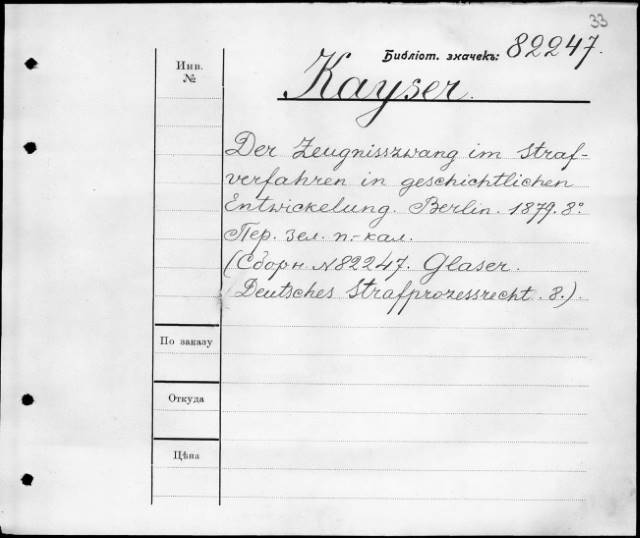 33
Библіот. значекъ: 82247.
Инв.
№
Kayser.
Der Zeugnisszwang im Straf-
verfahren in geschichtlichen
Entwickelung. Berlin. 1879. 8º
Пер. зел. п.-кал.
(Сборн №82247. Glaser.
Deutsches Strafprozessrecht. 8.).
По заказу
Откуда
Цѣна